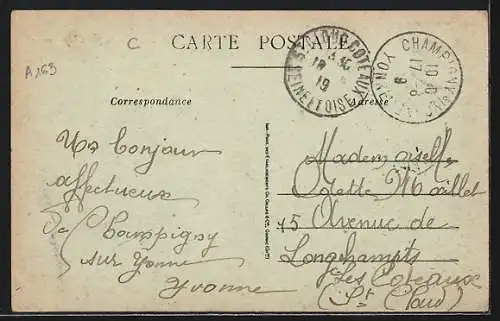 C
CARTE POSTALE
A169
Correspondance
Adresse
Un bonjour
affectueux
De Champigny
sur Yonne
Yvonne
Mademoiselle
Odette Maillet
15 Avenue de
Longchamps
Les Coteaux
(St Cloud)
ST CLOUD COTEAUX
SEINE ET OISE
CHAMPIGNY
YONNE